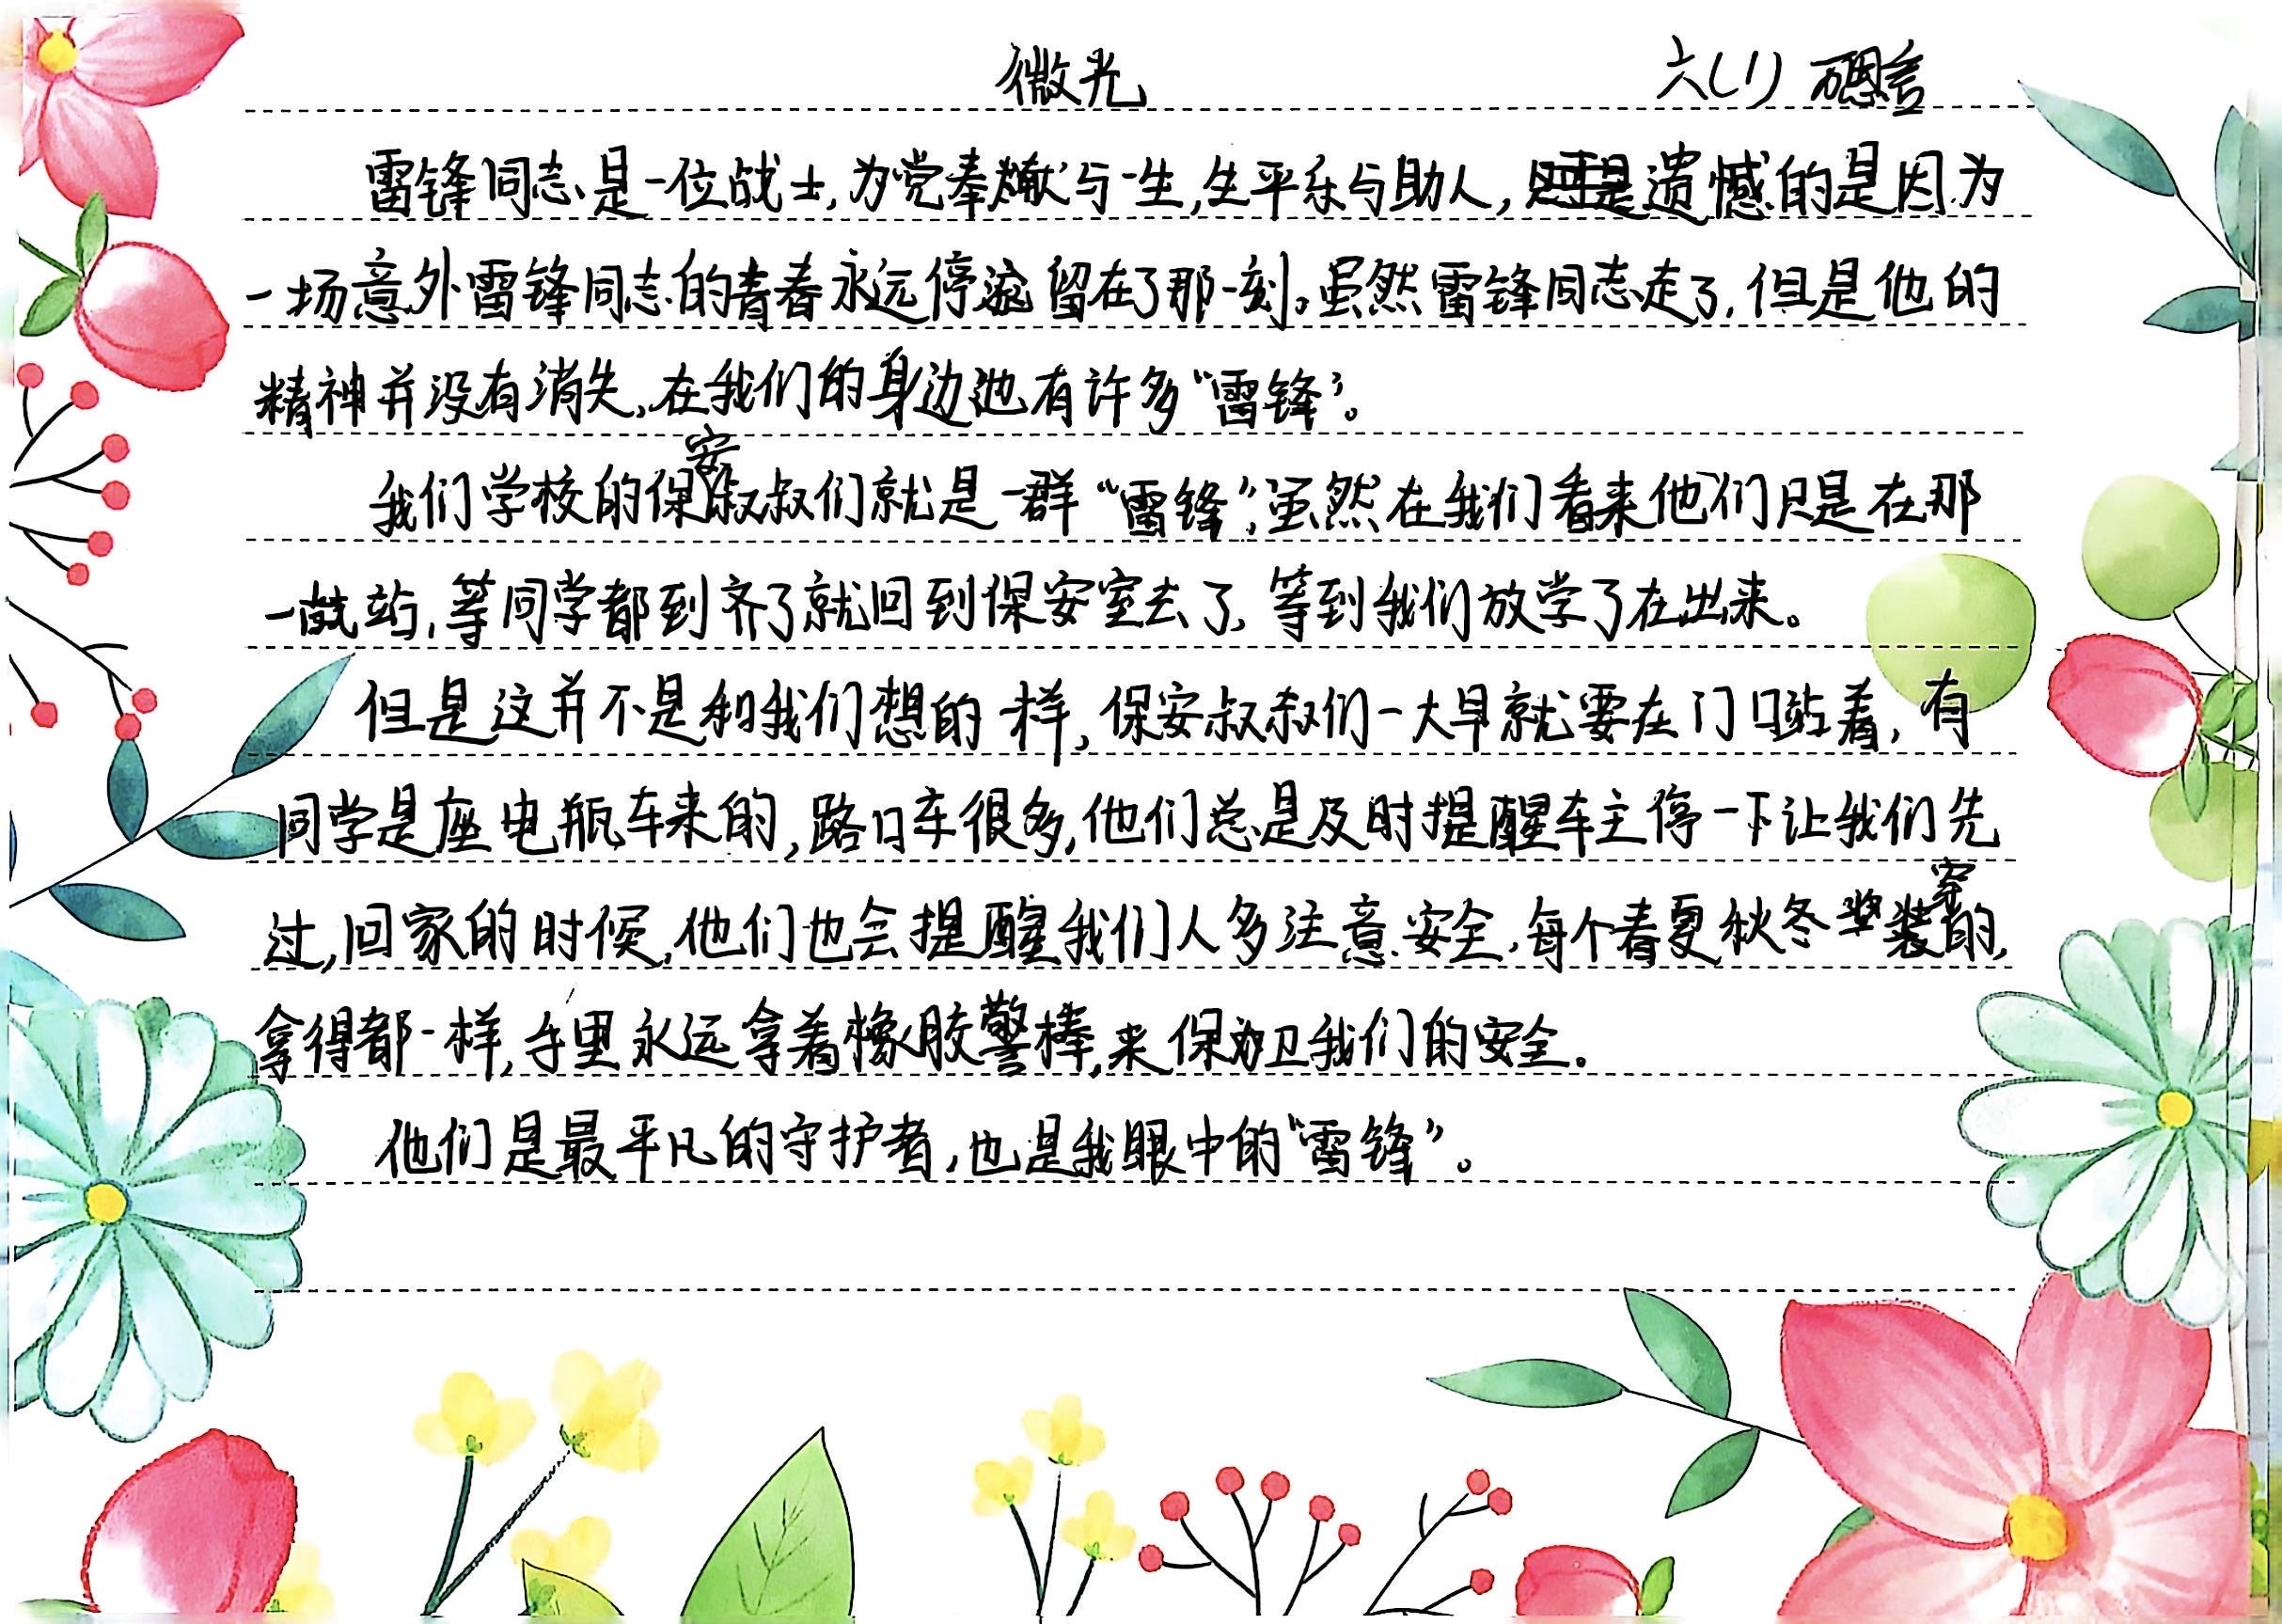 微光 六(1)
雷锋同志是一位战士,为党奉献与一生,生平乐与助人,遗憾的是因为
一场意外雷锋同志的青春永远停留在了那一刻。虽然雷锋同志走了,但是他的
精神并没有消失,在我们的身边也有许多“雷锋”。
我们学校的保安叔叔们就是一群“雷锋”,虽然在我们看来他们只是在那
一站,等同学都到齐了就回到保安室去了,等到我们放学了在出来。
但是这并不是和我们想的一样,保安叔叔们一大早就要在门口站着,有
同学是座电瓶车来的,路口车很多,他们总是及时提醒车主停一下让我们先
过,回家的时候,他们也会提醒我们人多注意安全,每个春夏秋冬穿的,
拿得都一样,手里永远拿着橡胶警棒,来保卫我们的安全。
他们是最平凡的守护者,也是我眼中的“雷锋”。